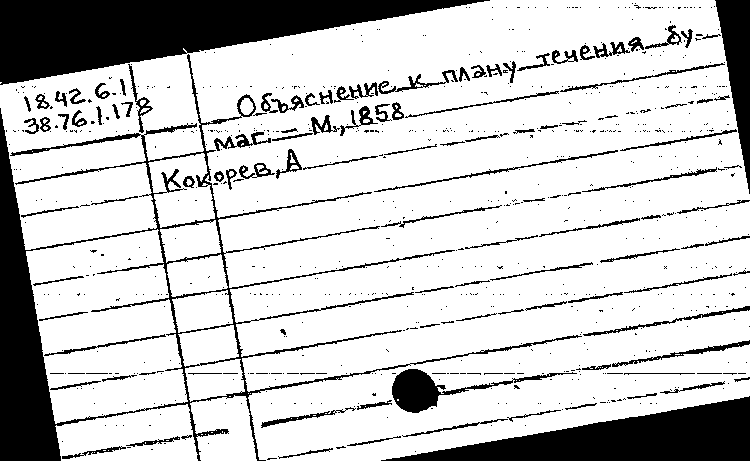 18.42.6.1
38.76.1.178
Объяснение к плану течения бу-
маг. - М., 1858
Кокорев, А